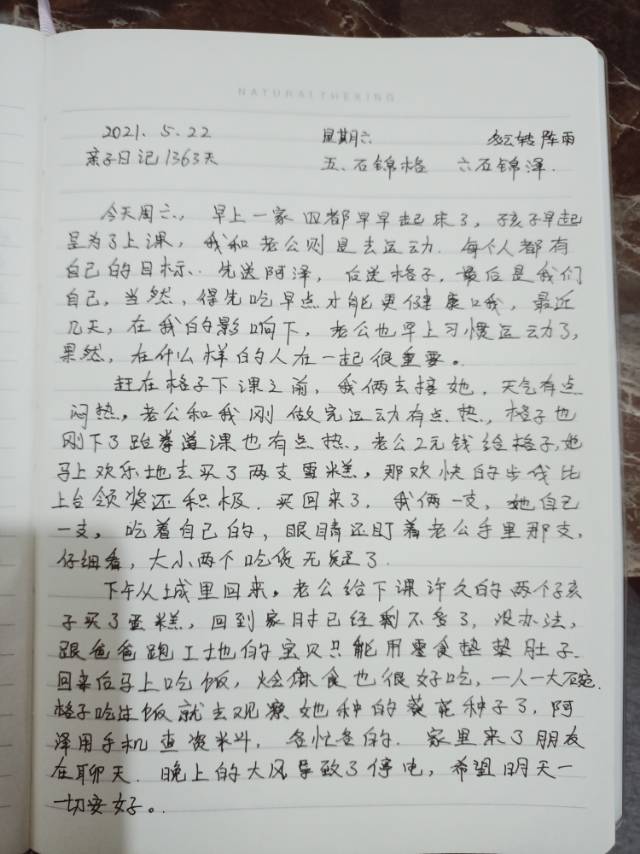 NATURALTHEKING
2021.5.22 星期六 多云转阵雨
亲子日记1363天 五、石锦格 六石锦泽.
今天周六,早上一家四都早早起床了,孩子早起
是为了上课,我和老公则是去运动.每个人都有
自己的目标.先送阿泽,后送格子,最后是我们
自己,当然,得先吃早点才能更健康哦,最近
几天,在我的影响下,老公也早上习惯运动了,
果然,在什么样的人在一起很重要。
赶在格子下课之前,我俩去接她,天气有点
闷热,老公和我刚做完运动有点热,格子也
刚下了跆拳道课也有点热,老公2元钱给格子,她
马上欢乐地去买了两支雪糕,那欢快的步伐比
上台领奖还积极.买回来了,我俩一支,她自己
一支,吃着自己的,眼睛还盯着老公手里那支,
仔细看,大小两个吃货无疑了.
下午从城里回来,老公给下课许久的两个孩
子买了蛋糕,回到家时已经剩不多了,没办法,
跟爸爸跑工地的宝贝只能用零食垫垫肚子.
回来后马上吃饭,烩食也很好吃,一人一大碗.
格子吃过饭就去观察她种的葵花种子了,阿
泽用手机查资料,各忙各的.家里来了朋友
在聊天.晚上的大风导致了停电,希望明天一
一切安好。